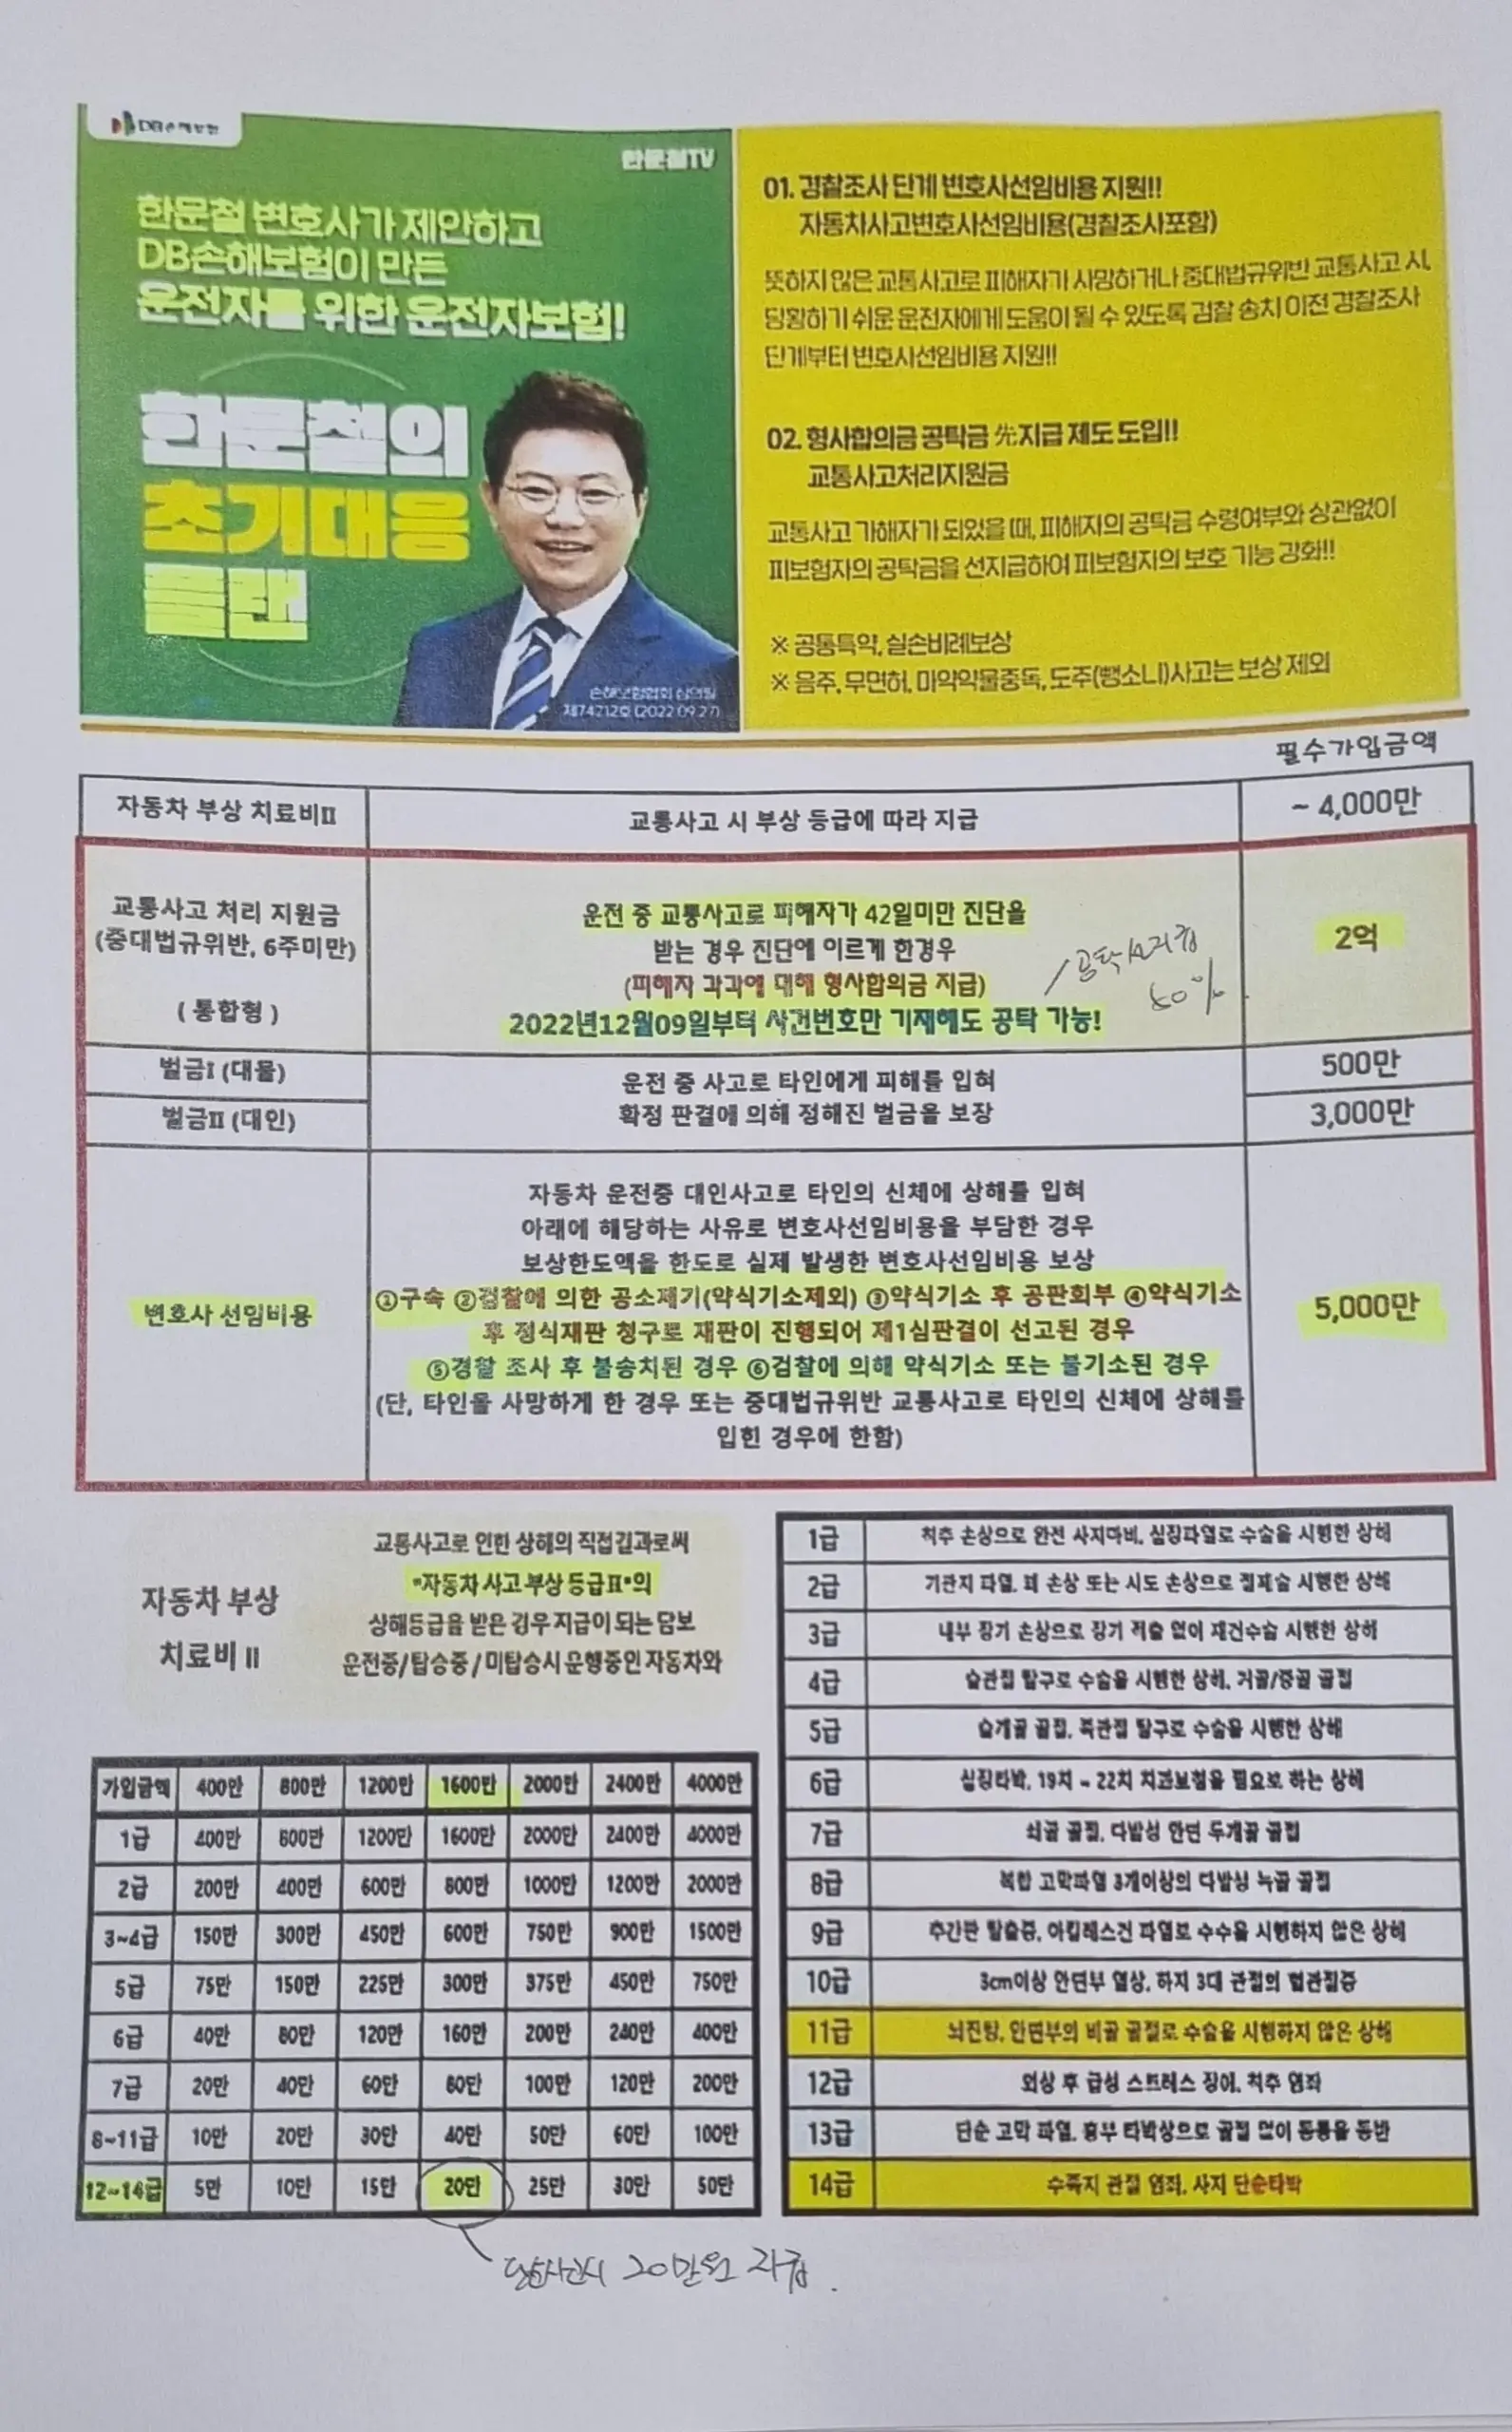 DB손해보험
한문철TV
한문철 변호사가 제안하고
DB손해보험이 만든
운전자를 위한 운전자보험!
한문철의
초기대응
플랜
손해보험협회 심의필
제74212호 (2022.09.27)
01. 경찰조사 단계 변호사선임비용 지원!!
자동차사고변호사선임비용(경찰조사포함)
뜻하지 않은 교통사고로 피해자가 사망하거나 중대법규위반 교통사고 시,
당황하기 쉬운 운전자에게 도움이 될 수 있도록 검찰 송치 이전 경찰조사
단계부터 변호사선임비용 지원!!
02. 형사합의금 공탁금 先지급 제도 도입!!
교통사고처리지원금
교통사고 가해자가 되었을 때, 피해자의 공탁금 수령여부와 상관없이
피보험자의 공탁금을 선지급하여 피보험자의 보호 기능 강화!!
※ 공통특약, 실손비례보상
※ 음주, 무면허, 마약약물중독, 도주(뺑소니)사고는 보상 제외
필수가입금액
자동차 부상 치료비II 교통사고 시 부상 등급에 따라 지급 ~ 4,000만
교통사고 처리 지원금
(중대법규위반, 6주미만)
(통합형)
운전 중 교통사고로 피해자가 42일미만 진단을
받는 경우 진단에 이르게 한경우
(피해자 각각에 대해 형사합의금 지급)
2022년12월09일부터 사건번호만 기재해도 공탁 가능!
2억
벌금I (대물)
벌금II (대인)
운전 중 사고로 타인에게 피해를 입혀
확정 판결에 의해 정해진 벌금을 보장
500만
3,000만
변호사 선임비용
자동차 운전중 대인사고로 타인의 신체에 상해를 입혀
아래에 해당하는 사유로 변호사선임비용을 부담한 경우
보상한도액을 한도로 실제 발생한 변호사선임비용 보상
①구속 ②검찰에 의한 공소제기(약식기소제외) ③약식기소 후 공판회부 ④약식기소
후 정식재판 청구로 재판이 진행되어 제1심판결이 선고된 경우
⑤경찰 조사 후 불송치된 경우 ⑥검찰에 의해 약식기소 또는 불기소된 경우
(단, 타인을 사망하게 한 경우 또는 중대법규위반 교통사고로 타인의 신체에 상해를
입힌 경우에 한함)
5,000만
자동차 부상
치료비 II
교통사고로 인한 상해의 직접결과로써
"자동차 사고 부상 등급II"의
상해등급을 받은 경우 지급이 되는 담보
운전중/탑승중/미탑승시 운행중인 자동차와
가입금액 400만 800만 1200만 1600만 2000만 2400만 4000만
1급 400만 800만 1200만 1600만 2000만 2400만 4000만
2급 200만 400만 600만 800만 1000만 1200만 2000만
3~4급 150만 300만 450만 600만 750만 900만 1500만
5급 75만 150만 225만 300만 375만 450만 750만
6급 40만 80만 120만 160만 200만 240만 400만
7급 20만 40만 60만 80만 100만 120만 200만
8~11급 10만 20만 30만 40만 50만 60만 100만
12~14급 5만 10만 15만 20만 25만 30만 50만
20만원 지급.
1급 척추 손상으로 완전 사지마비, 심장파열로 수술을 시행한 상해
2급 기관지 파열, 폐 손상 또는 식도 손상으로 절제술 시행한 상해
3급 내부 장기 손상으로 장기 적출 없이 재건수술 시행한 상해
4급 슬관절 탈구로 수술을 시행한 상해, 거골/종골 골절
5급 슬개골 골절, 족관절 탈구로 수술을 시행한 상해
6급 심장타박, 19치 ~ 22치 치과보철을 필요로 하는 상해
7급 쇄골 골절, 다발성 안면 두개골 골절
8급 복합 고막파열 3개이상의 다발성 늑골 골절
9급 추간판 탈출증, 아킬레스건 파열로 수수을 시행하지 않은 상해
10급 3cm이상 안면부 열상, 하지 3대 관절의 혈관절증
11급 뇌진탕, 안면부의 비골 골절로 수술을 시행하지 않은 상해
12급 외상 후 급성 스트레스 장애, 척추 염좌
13급 단순 고막 파열, 흉부 타박상으로 골절 없이 동통을 동반
14급 수족지 관절 염좌, 사지 단순타박